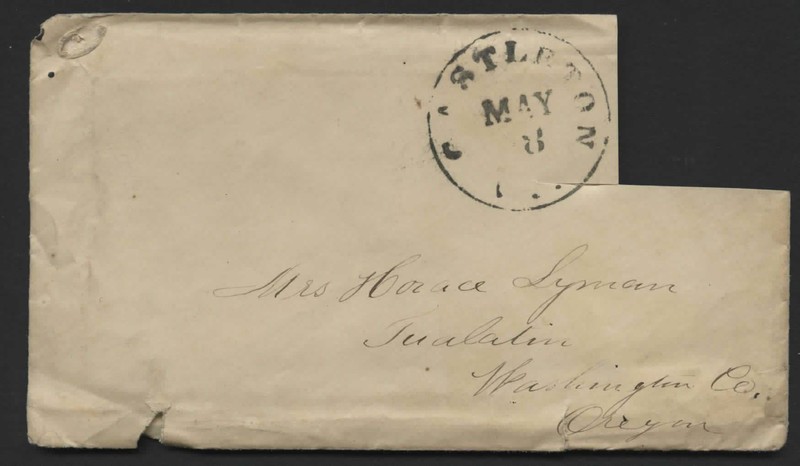 CASTLETON
MAY
8
Mrs Horace Lyman
Tualatin
Washington Co.
Oregon